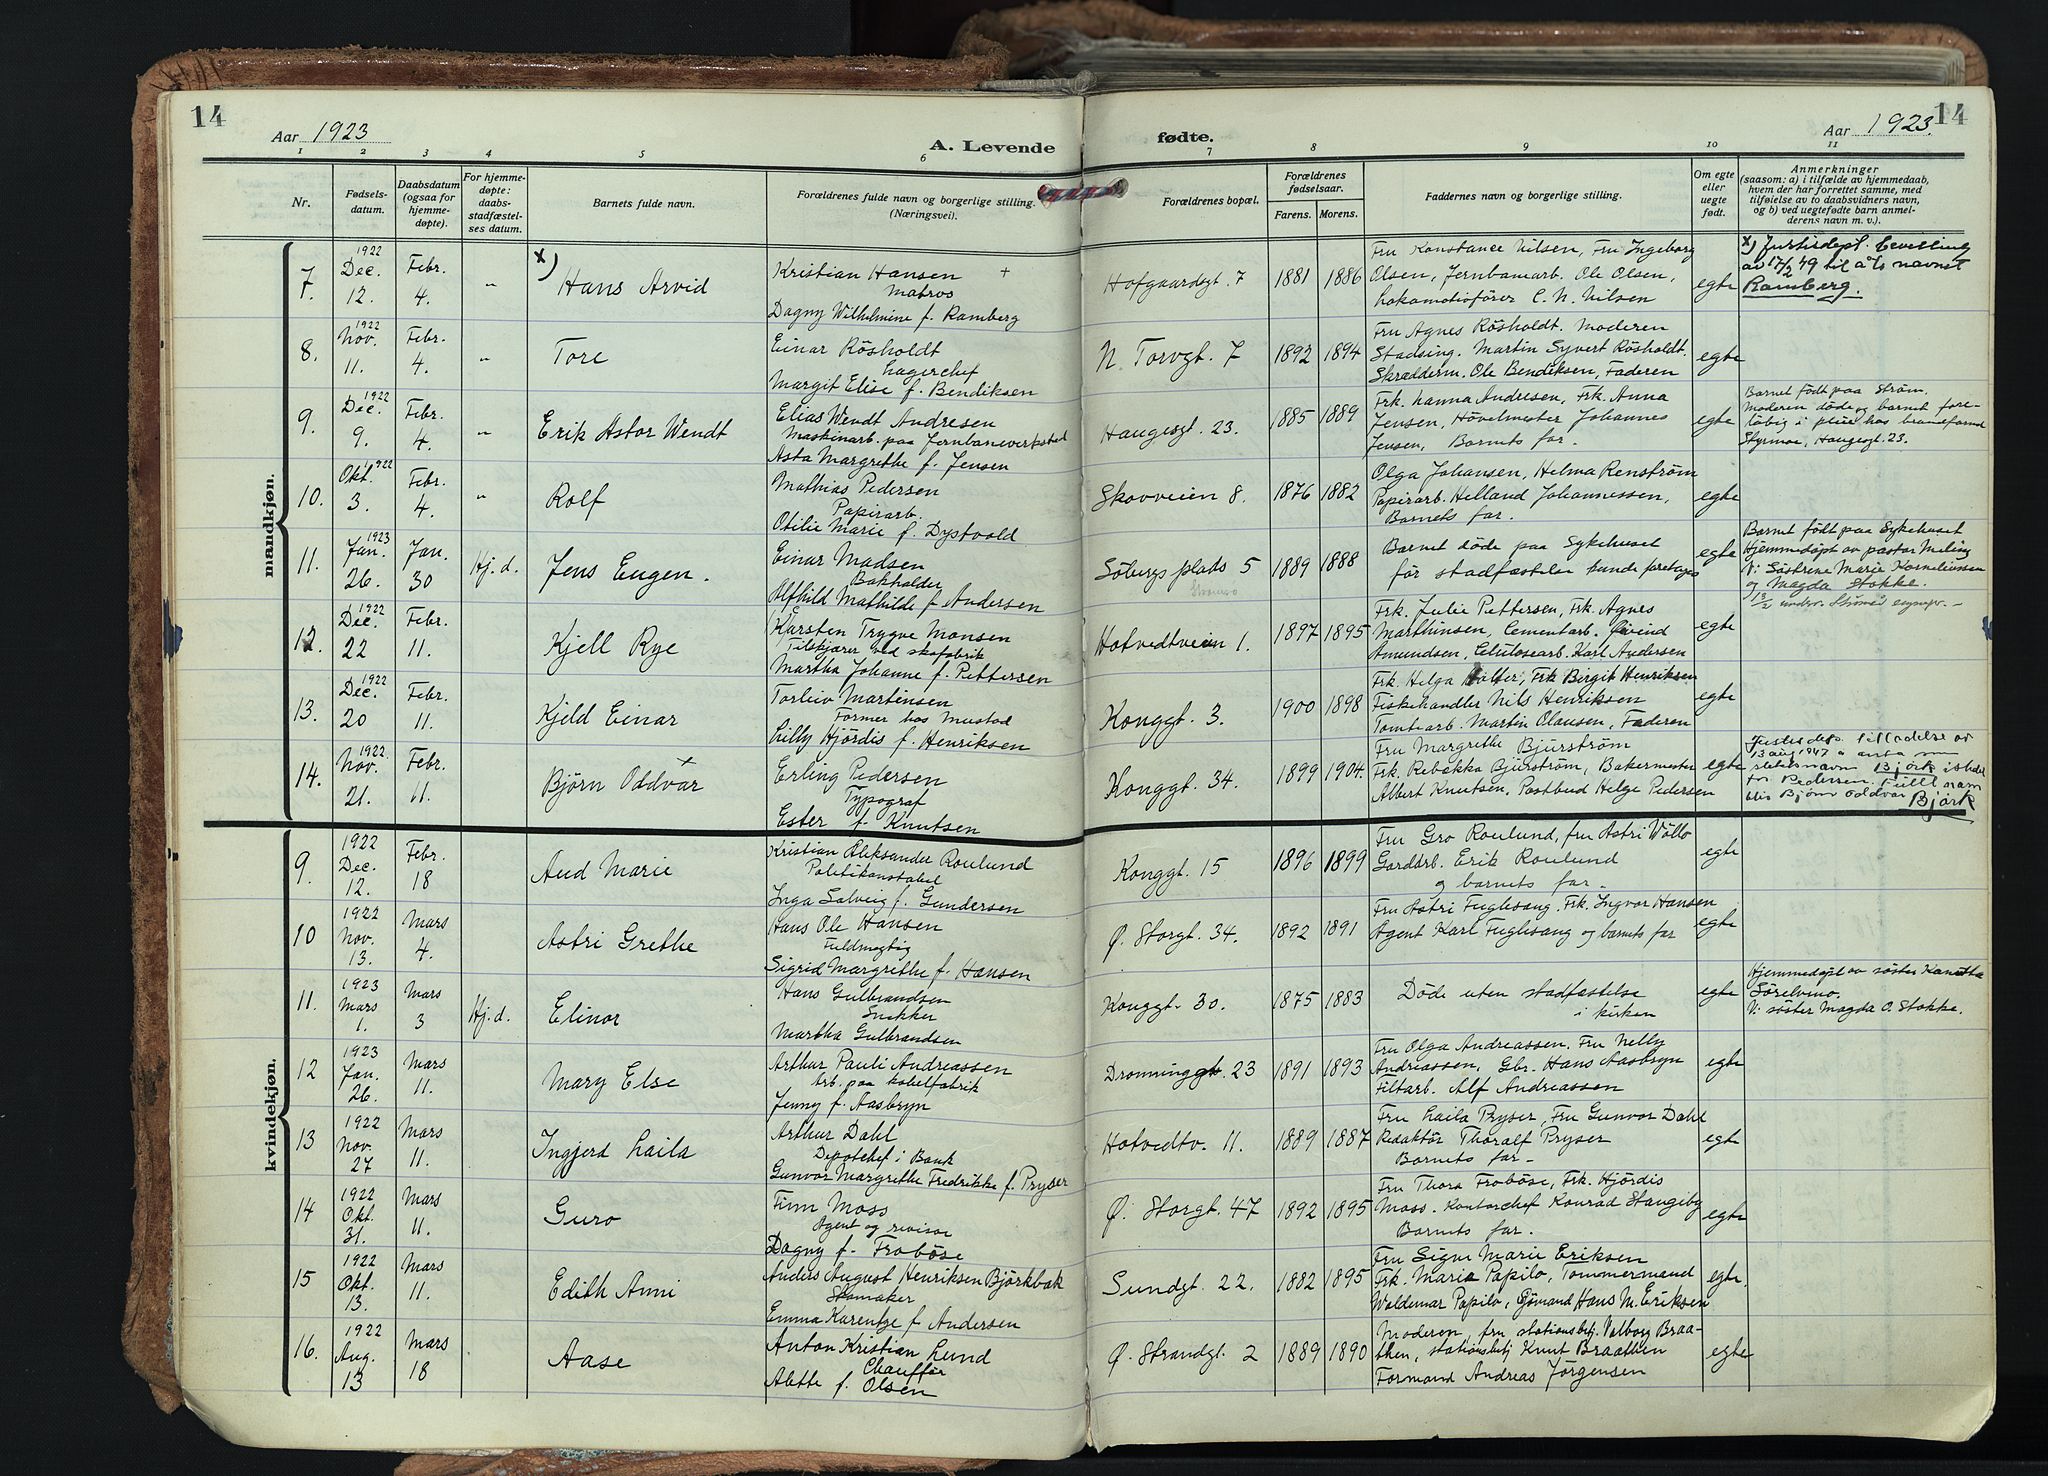 14
Aar 1923
A. Levende
fødte.
Aar 1923.
14
1 2 3 4 5 6 7 8 9 10 11
Nr.
Fødsels-
datum.
Daabsdatum
(ogsaa for
hjemme-
døpte).
For hjemme-
døpte:
daabs-
stadfæstel-
ses datum.
Barnets fulde navn.
Forældrenes fulde navn og borgerlige stilling.
(Næringsvei).
Forældrenes bopæl.
Forældrenes
fødselsaar.
Farens. Morens.
Faddernes navn og borgerlige stilling.
Om egte
eller
uegte
født.
Anmerkninger
(saasom: a) i tilfælde av hjemmedaab,
hvem der har forrettet samme, med
tilføielse av to daabsvidners navn,
og b) ved uegtefødte barn anmel-
derens navn m. v.).
mandkjøn.
7.
1922
Dec.
12.
Febr.
4.
"
x)
Hans Arvid
Kristian Hansen +
Matros
Dagny Wilhelmine f. Ramberg
Hofgaardsgt. 7
1881 1886
Fru Konstance Nilsen, Fru Ingeborg
Olsen, Jernbanearb. Ole Olsen,
Lokomotivfører C. N. Nilsen
egte
x) Justisdept. bevilling
av 17/2 49 til å ta navnet
Ramberg.
8.
1922
Nov.
11.
Febr.
4.
"
Tore
Einar Rösholdt
Lagerchef
Margit Elise f. Bendiksen
N. Torvgt. 7
1892 1894
Fru Agnes Rösholdt. Moderen
Stadsing. Martin Syvert Rösholdt.
Skrædderm. Ole Bendiksen, Faderen
egte
9.
1922
Dec.
9.
Febr.
4.
"
Erik Astor Wendt
Elias Wendt Andresen
Maskinarb. paa Jernbaneverksted
Asta Margrethe f. Jensen
Haugesgt. 23.
1885 1889
Frk. Hanna Andresen, Frk. Anna
Jensen, Hövelmester Johannes
Jensen, Barnets far.
egte
Barnet födt paa Ström.
Moderen döde og barnet fore-
löbig i pleie hos
Styrmoe, Haugesgt. 23.
10.
1922
Okt.
3.
Febr.
4.
"
Rolf
Mathias Pedersen
Papirarb.
Otilie Marie f. Dystvold
Skovveien 8.
1876 1882
Olga Johansen, Helma Renström
Papirarb. Helland Johannessen,
Barnets far.
egte
11.
1923
Jan.
26.
Jan.
30
Hj.d.
Jens Eugen.
Einar Madsen
Bokholder
Alfhild Mathilde f. Andersen
Söbergs plads 5
1889 1888
Barnet döde paa Sykehuset
för stadfæstelse kunde foretages
egte
Barnet födt paa Sykehuset
Hjemmedöpt av pastor Meling
V: Söstrene Marie Korneliussen
og Magda Stokke.
12.
1922
Dec.
22
Febr.
11.
Kjell Rye
Karsten Trygve Monsen
Tilskjærer ved skofabrik
Martha Johanne f. Pettersen
Hotvedtveien 1.
1897 1895
Frk. Julie Pettersen, Frk. Agnes
Marthinsen, Cementarb. Eivind
Amundsen, Celulosearb. Karl Andersen
egte
13.
1922
Dec.
20
Febr.
11.
Kjeld Einar
Torleiv Martinsen
Former hos Mustad
Lilly Hjördis f. Henriksen
Konggt. 3.
1900 1898
Frk. Helga Holter, Frk Birgit Henriksen
Fiskehandler Nils Henriksen
Tomtearb. Martin Olausen, Faderen
egte
14.
1922
Nov.
21.
Febr.
11.
x
Björn Oddvar
Erling Pedersen
Typograf
Ester f. Knutsen
Konggt. 34.
1899 1904.
Fru Margrethe Bjurström
Frk. Rebekka Bjurström, Bakermester
Albert Knutsen, Postbud Helge Pedersen
egte
Justisdeps. tilladelse av
13 aug 1947 å anta som
slektsnavn Bjørk istedet
for Pedersen. Fullt navn
blir Bjørn Oddvar Bjørk
kvindekjøn.
9.
1922
Dec.
12.
Febr.
18
Aud Marie
Kristian Aleksander Roulund
Politikonstabel
Inga Solveig f. Gundersen
Konggt. 15
1896 1899
Fru Gro Roulund, fru Astri Völlo
Gardarb. Erik Roulund
og barnets far.
egte
10
1922
Nov.
13.
Mars
4.
Astri Grethe
Hans Ole Hansen
Fuldmegtig
Sigrid Margrethe f. Hansen
Ø. Storgt. 34.
1892 1891
Fru Astri Fuglesang. Frk. Ingvor Hansen
Agent Karl Fuglesang og barnets far
egte
11.
1923
Mars
1.
Mars
3
Hj.d.
Elinor
Hans Gulbrandsen
Snekker
Martha Gulbrandsen
Konggt. 30.
1875 1883
Döde uten stadfæstelse
i kirken
egte
Hjemmedöpt av söster
V: söster Magda O. Stokke.
12
1923
Jan.
26.
Mars
11.
Mary Else
Arthur Pauli Andreassen
Arb. paa kabelfabrik
Jenny f. Aasbryn
Dronninggt. 23
1891 1893
Fru Olga Andreassen. Fru Nelly
Andreassen, Gbr. Hans Aasbryn
Filtarb. Alf Andreassen
egte
13
1922
Nov.
27
Mars
11.
Ingjerd Laila
Arthur Dahl
Depotchef i Bank
Gunvor Margrethe Fredrikke f. Pryser
Hotvedtv. 11.
1889 1887
Fru Laila Pryser, Fru Gunvor Dahl
Redaktör Thoralf Pryser
Barnets far.
egte
14
1922
Okt.
31.
Mars
11.
Guro
Finn Moss
Agent og revisor
Dagny f. Froböse
Ø. Storgt. 47
1892 1895
Fru Thora Froböse, Frk. Hjördis
Moss. Kontorchef Konrad Stangeby
Barnets far.
egte
15
1922
Okt.
13.
Mars
11.
Edith Anni
Anders August Henriksen Björkbak
Skomaker
Emma Karentze f. Andersen
Sundgt. 22.
1882 1895
Fru Signe Marie Eriksen
Frk. Marie Papilo, Tömmermand
Waldemar Papilo, Sjömand Hans M. Eriksen
egte.
16.
1922
Aug.
13
Mars
18
Aase
Anton Kristian Lund
Chauffør
Alette f. Olsen
Ø. Strandgt. 2
1889 1890
Moderen, fru stationsbetj. Valborg Braa-
then, stationsbetj Knut Braathen
Formand Andreas Jørgensen
egte